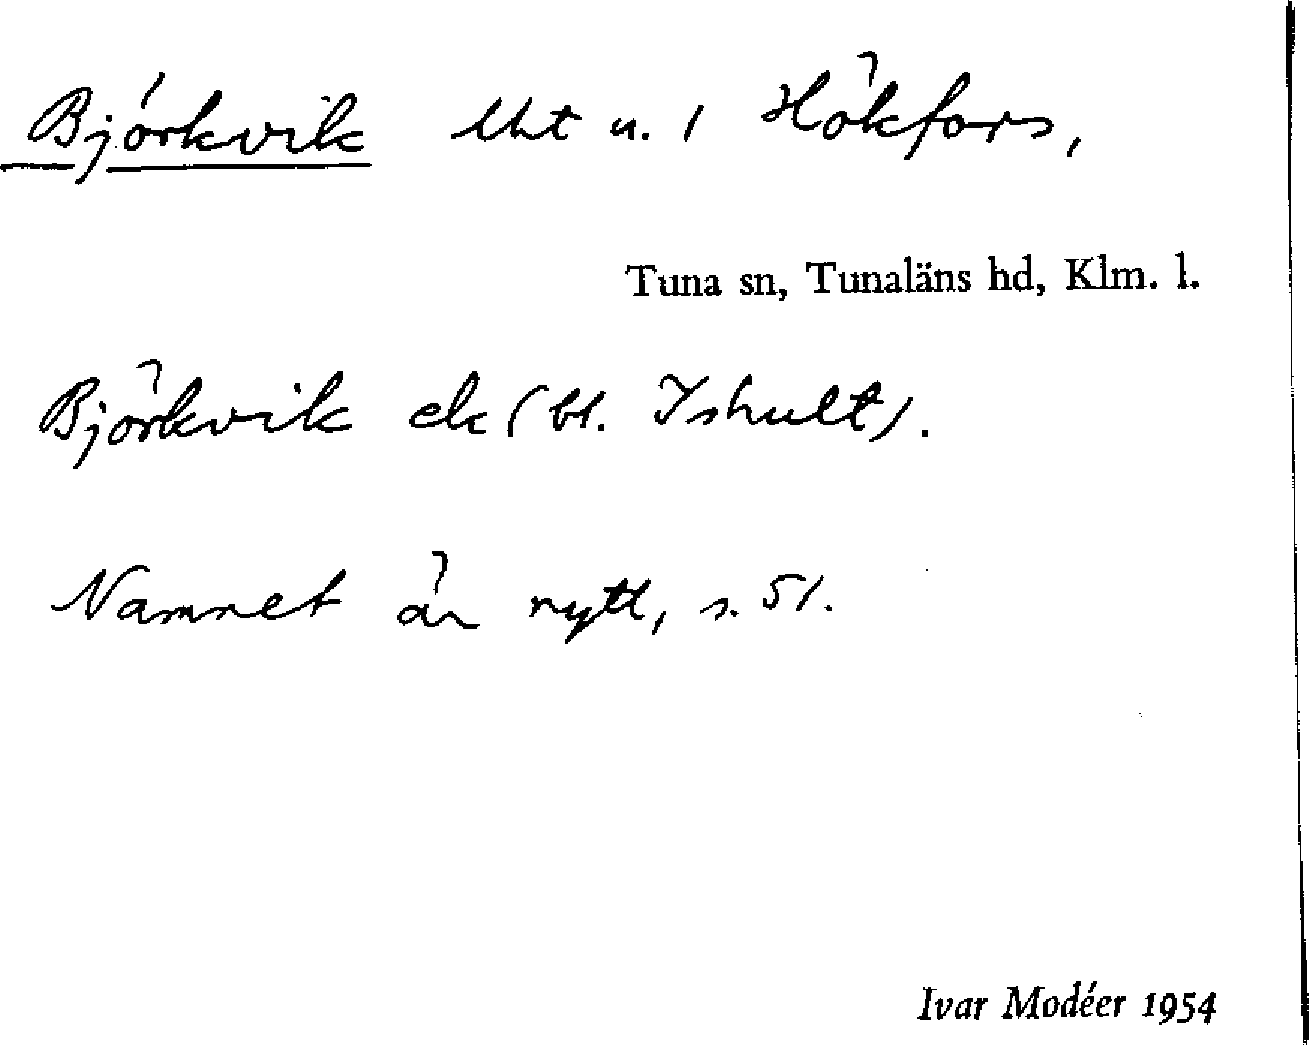 Björkvik lht u. 1 Hökfors,
Tuna sn, Tunaläns hd, Klm. l.
Björkvik ek (bl. Ishult).
Namnet är nytt, s. 51.
Ivar Modéer 1954